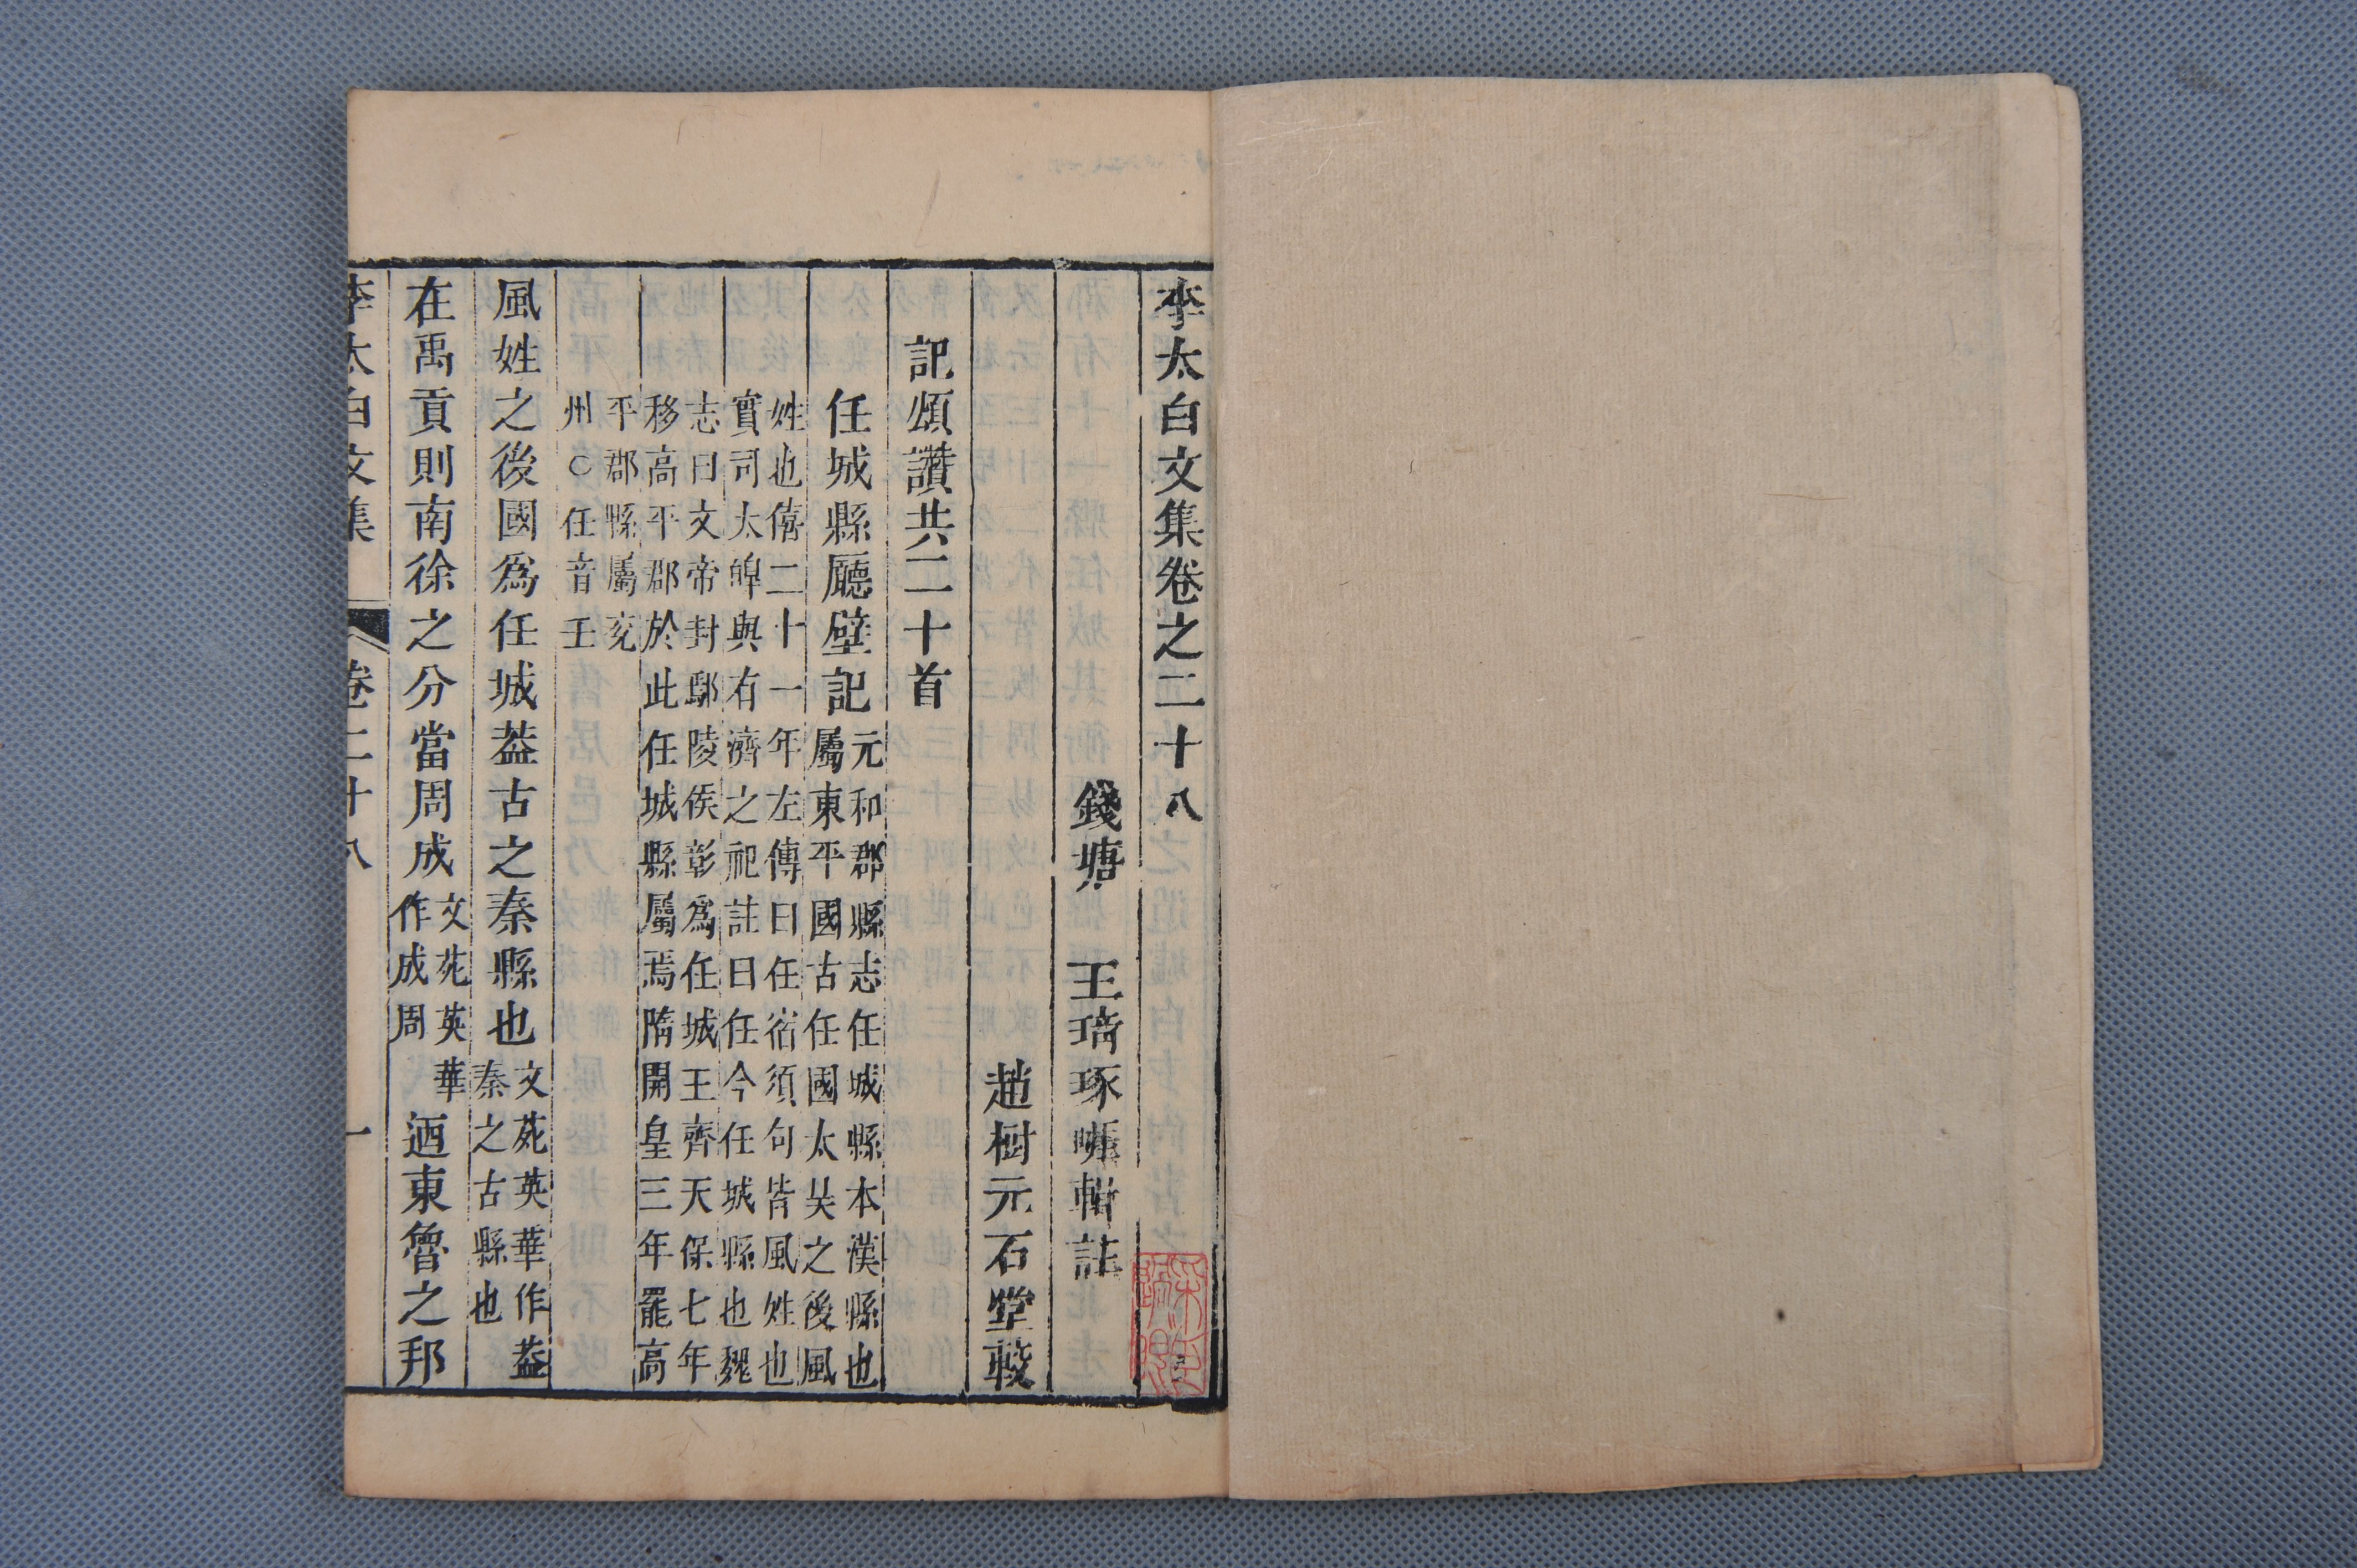 李太白文集卷之二十八
錢塘 王琦琢崖輯註
趙樹元石堂較
記頌讚共二十首
任城縣廳壁記
元和郡縣志任城縣本漢縣也
屬東平國古任國太昊之後風
姓也僖二十一年左傳曰任宿須句皆風姓也
實司太皥與有濟之祀註曰任今任城縣也魏
志曰文帝封鄢陵侯彰爲任城王齊天保七年
移高平郡於此任城縣屬焉隋開皇三年罷高
平郡縣屬兗
州○任音壬
風姓之後國爲任城葢古之秦縣也
文苑英華作葢
秦之古縣也
在禹貢則南徐之分當周成
文苑英華
作成周
迺東魯之邦
李太白文集 卷二十八 一